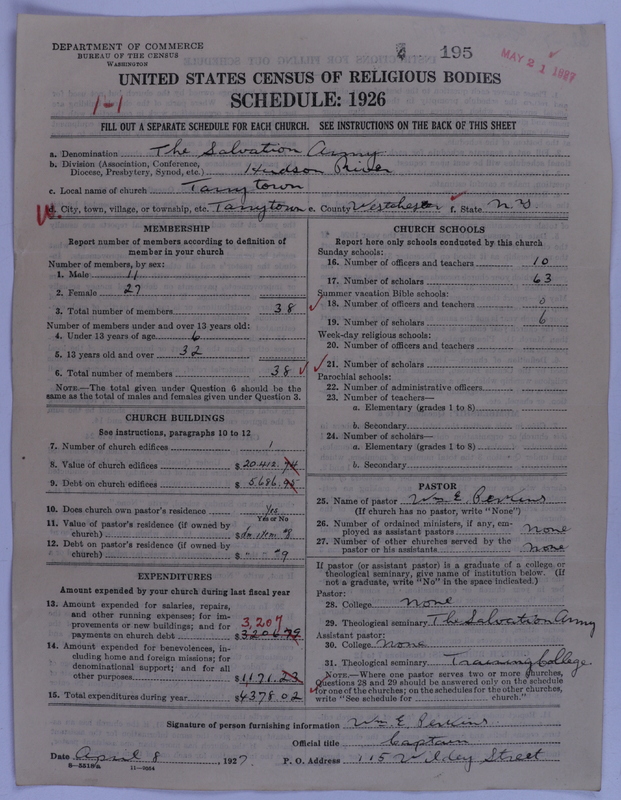 DEPARTMENT OF COMMERCE
BUREAU OF THE CENSUS
WASHINGTON
195
MAY 21 1927
UNITED STATES CENSUS OF RELIGIOUS BODIES
1-1
SCHEDULE: 1926
FILL OUT A SEPARATE SCHEDULE FOR EACH CHURCH. SEE INSTRUCTIONS ON THE BACK OF THIS SHEET
a. Denomination The Salvation Army
b. Division (Association, Conference, Diocese, Presbytery, Synod, etc.) Hudson River
c. Local name of church Tarrytown
d. City, town, village, or township, etc. Tarrytown e. County Westchester f. State N.Y.
MEMBERSHIP
Report number of members according to definition of member in your church
Number of members, by sex:
1. Male 11
2. Female 27
3. Total number of members 38
Number of members under and over 13 years old:
4. Under 13 years of age 6
5. 13 years old and over 32
6. Total number of members 38
NOTE.—The total given under Question 6 should be the same as the total of males and females given under Question 3.
CHURCH BUILDINGS
See instructions, paragraphs 10 to 12
7. Number of church edifices 1
8. Value of church edifices $20412.74
9. Debt on church edifices $5686.95
10. Does church own pastor's residence Yes
Yes or No
11. Value of pastor's residence (if owned by church) $ in item #8
12. Debt on pastor's residence (if owned by church) $ " " #9
EXPENDITURES
Amount expended by your church during last fiscal year
13. Amount expended for salaries, repairs, and other running expenses; for improvements or new buildings; and for payments on church debt 3,207 $3206.79
14. Amount expended for benevolences, including home and foreign missions; for denominational support; and for all other purposes $1171.23
15. Total expenditures during year $4378.02
CHURCH SCHOOLS
Report here only schools conducted by this church
Sunday schools:
16. Number of officers and teachers 10
17. Number of scholars 63
Summer vacation Bible schools:
18. Number of officers and teachers 0
19. Number of scholars 6
Week-day religious schools:
20. Number of officers and teachers
21. Number of scholars
Parochial schools:
22. Number of administrative officers
23. Number of teachers—
a. Elementary (grades 1 to 8)
b. Secondary
24. Number of scholars—
a. Elementary (grades 1 to 8)
b. Secondary
PASTOR
25. Name of pastor Wm E. Perkins
(If church has no pastor, write "None")
26. Number of ordained ministers, if any, employed as assistant pastors None
27. Number of other churches served by the pastor or his assistants None
If pastor (or assistant pastor) is a graduate of a college or theological seminary, give name of institution below. (If not a graduate, write "No" in the space indicated.)
Pastor:
28. College None
29. Theological seminary The Salvation Army
Assistant pastor:
30. College None
31. Theological seminary Training College
NOTE.—Where one pastor serves two or more churches, Questions 28 and 29 should be answered only on the schedule for one of the churches; on the schedules for the other churches, write "See schedule for church."
Signature of person furnishing information Wm E. Perkins
Official title Captain
Date April 8, 1927 P. O. Address 115 Wildey Street
8-5518a 11-9554